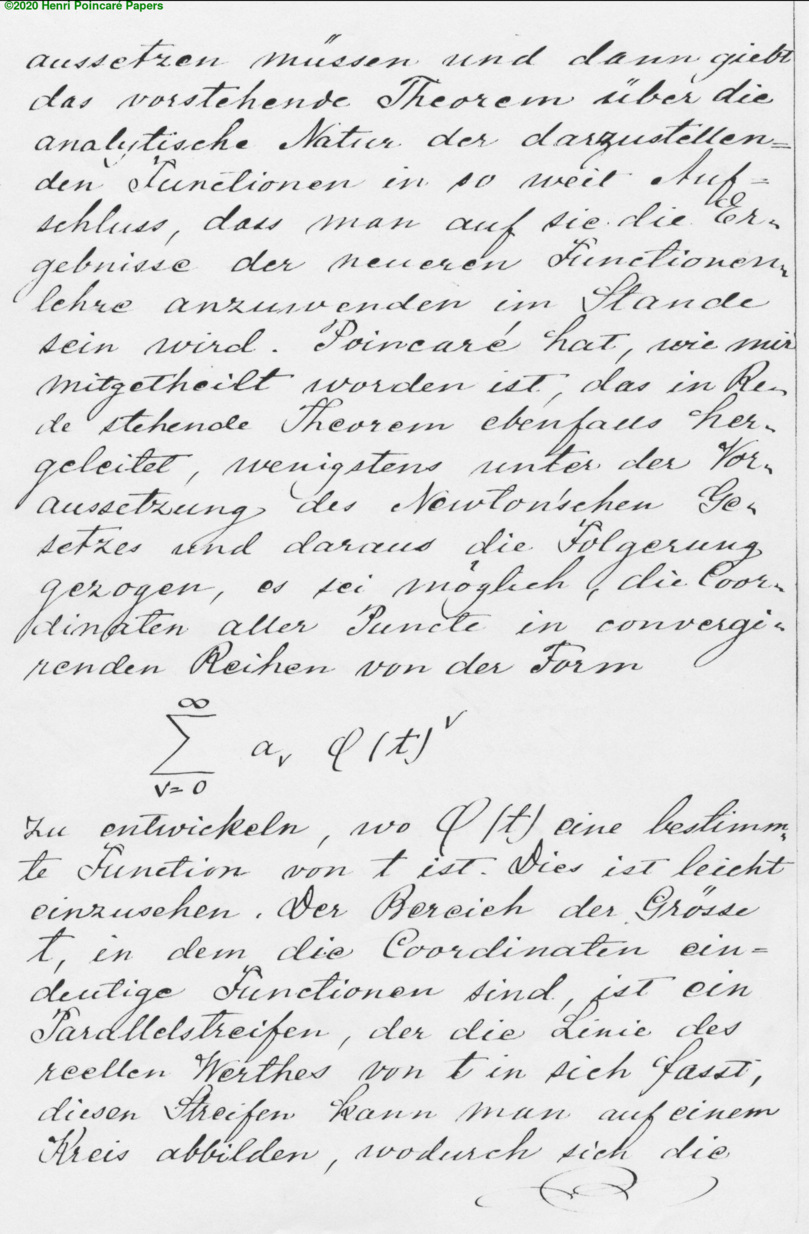 ©2020 Henri Poincaré Papers
aussetzen müssen und dann giebt
das vorstehende Theorem über die
analytische Natur der darzustellen=
den Functionen in so weit Auf=
schluss, dass man auf sie die Er-
gebnisse der neueren Functionen-
lehre anzuwenden im Stande
sein wird. Poincaré hat, wie mir
mitgetheilt worden ist, das in Re-
de stehende Theorem ebenfalls her-
geleitet, wenigstens unter der Vor-
aussetzung des Newton'schen Ge-
setzes und daraus die Folgerung
gezogen, es sei möglich, die Coor-
dinaten aller Puncte in convergi-
renden Reihen von der Form
∞
∑ a_ν φ(t)^ν
ν=0
zu entwickeln, wo φ(t) eine bestimm-
te Function von t ist. Dies ist leicht
einzusehen. Der Bereich der Grösse
t, in dem die Coordinaten ein=
deutige Functionen sind, ist ein
Parallelstreifen, der die Linie des
reellen Werthes von t in sich fasst,
diesen Streifen kann man auf einem
Kreis abbilden, wodurch sich die